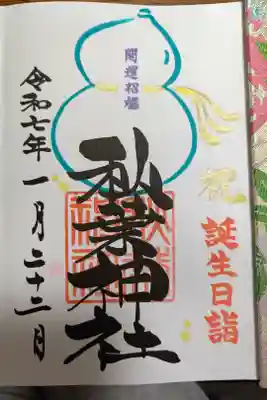 祝
誕生日詣
開運招福
秋葉神社
令和七年 一月二十二日